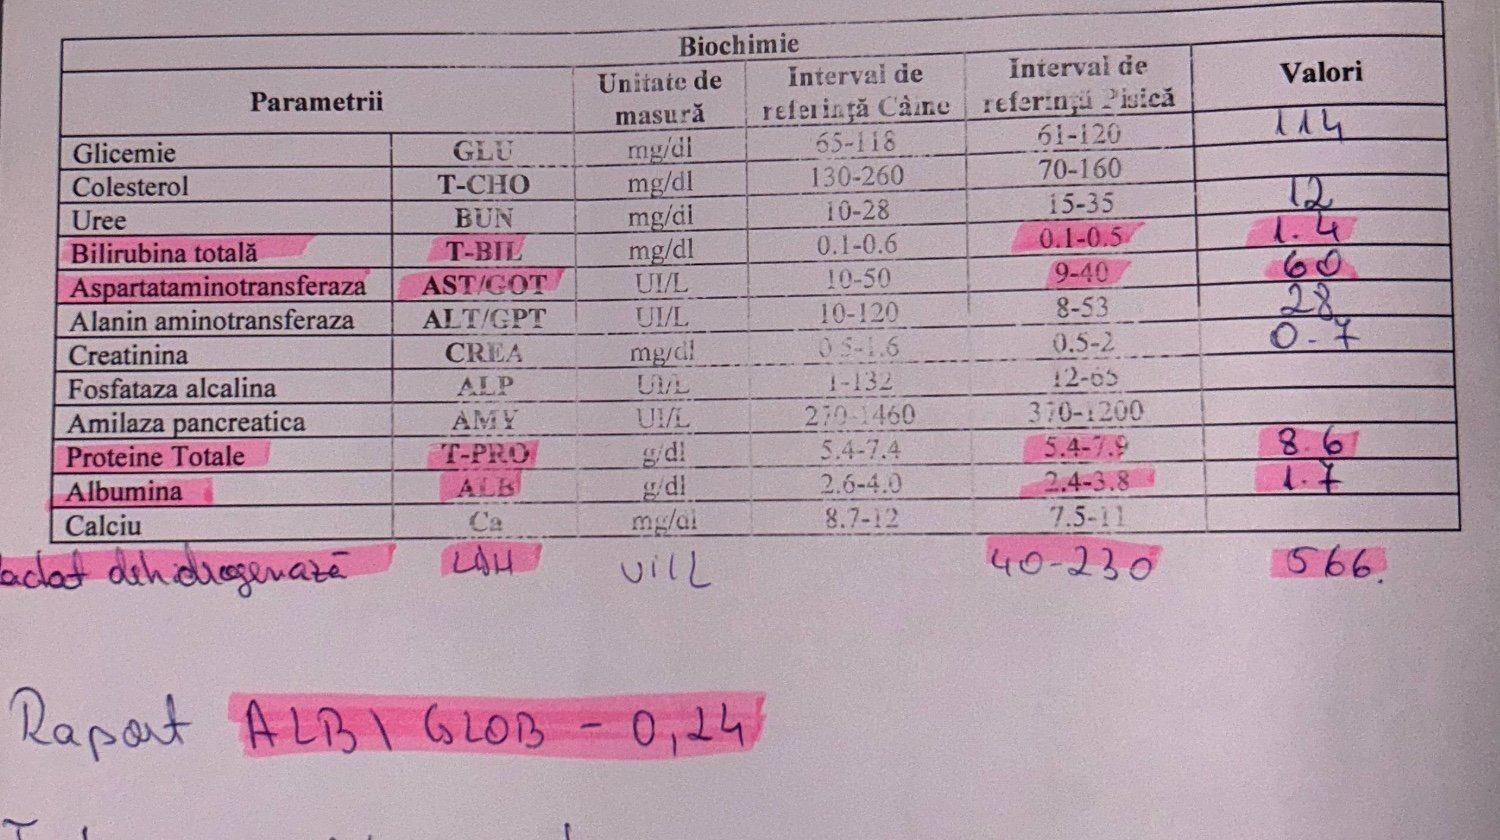 Biochimie
Parametrii Unitate de masură Interval de referință Câine Interval de referință Pisică Valori
Glicemie GLU mg/dl 65-118 61-120 114
Colesterol T-CHO mg/dl 130-260 70-160
Uree BUN mg/dl 10-28 15-35 12
Bilirubina totală T-BIL mg/dl 0.1-0.6 0.1-0.5 1.4
Aspartataminotransferaza AST/GOT UI/L 10-50 9-40 60
Alanin aminotransferaza ALT/GPT UI/L 10-120 8-53 28
Creatinina CREA mg/dl 0.5-1.6 0.5-2 0.7
Fosfataza alcalina ALP UI/L 1-132 12-65
Amilaza pancreatica AMY UI/L 270-1460 370-1200
Proteine Totale T-PRO g/dl 5.4-7.4 5.4-7.9 8.6
Albumina ALB g/dl 2.6-4.0 2.4-3.8 1.7
Calciu Ca mg/dl 8.7-12 7.5-11
lactat dehidrogenază LDH UI/L 40-230 566.
Raport ALB \ GLOB - 0,24